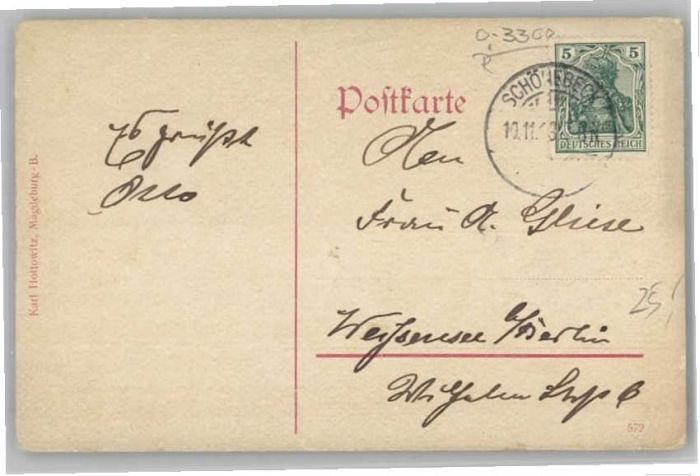 Karl Hottowitz, Magdeburg-B.
Es grüßt
Otto
Postkarte
5 5
DEUTSCHES REICH
SCHÖNEBECK
10.11.13
An
Frau A. Gliese
Weißensee b/Berlin
Wilhelm Str 6
25,
572